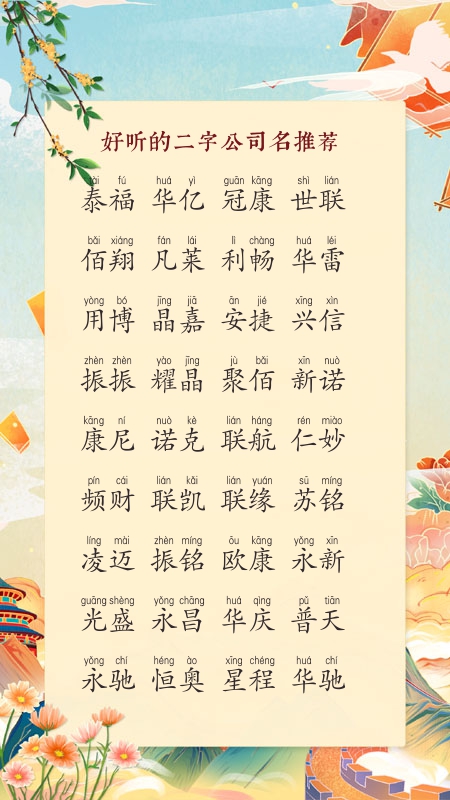 好听的二字公司名推荐
tài fú huá yì guān kāng shì lián
泰福 华亿 冠康 世联
bǎi xiáng fán lái lì chàng huá léi
佰翔 凡莱 利畅 华雷
yòng bó jīng jiā ān jié xīng xìn
用博 晶嘉 安捷 兴信
zhèn zhèn yào jīng jù bǎi xīn nuò
振振 耀晶 聚佰 新诺
kāng ní nuò kè lián háng rén miào
康尼 诺克 联航 仁妙
pín cái lián kǎi lián yuán sū míng
频财 联凯 联缘 苏铭
líng mài zhèn míng ōu kāng yǒng xīn
凌迈 振铭 欧康 永新
guāng shèng yǒng chāng huá qìng pǔ tiān
光盛 永昌 华庆 普天
yǒng chí héng ào xīng chéng huá chí
永驰 恒奥 星程 华驰